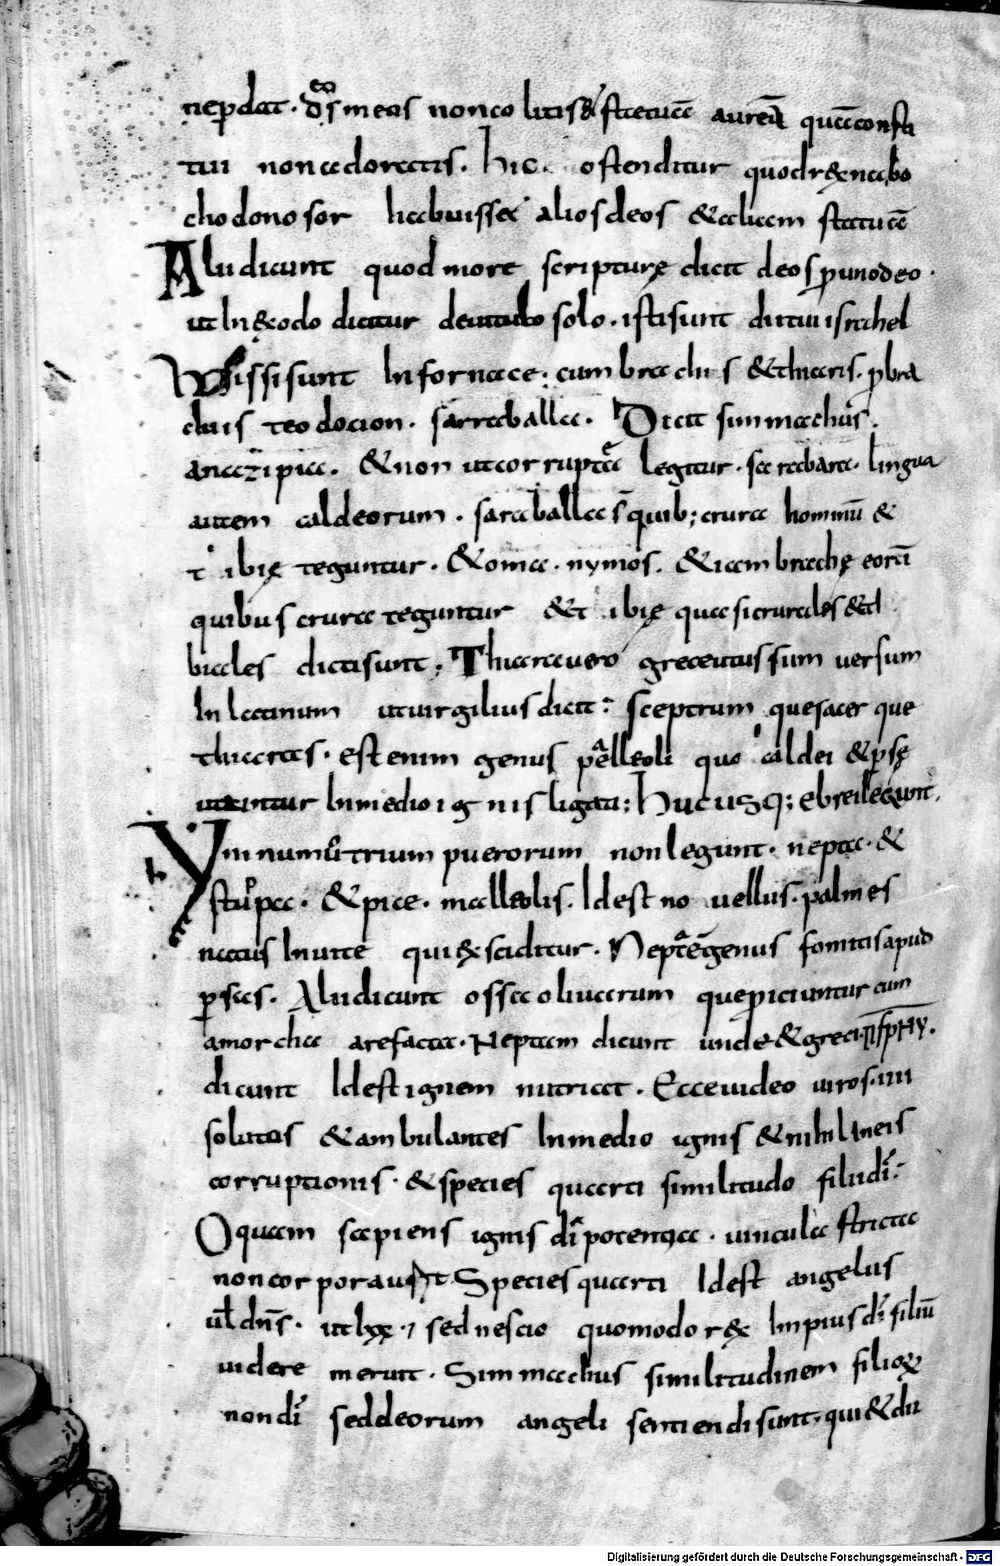 nep dat. d̄s meos non colitis & statuā aureā quā consti
tui non adoratis. hic ostenditur quod rex nabo
chodonosor habuisse alios deos & aliam statuā
Alii dicunt quod more scripturę dicit deos p uno deo.
ut in exodo dicitur de uitulo solo. isti sunt dii tui israhel
Missi sunt in fornace. cum bracchis & thiaris. p bra
chis teodocion. sarraballa. Dicit simmachus.
anaxipia. & non ut corrupte legitur. sarabara. lingua
autem caldeorum. saraballa s̄ quib; crura hominū &
tibię teguntur. & oma nymos. & iam brachę eorū
quibus crura teguntur & tibię quasi crurales & ti
biales dicti sunt. Thiara uero grece ut ussum uersum
In latinum ut uirgilius dicit: sceptrum que sacer que
thiaras. est enim genus palleoli quo caldei & persę
utuntur In medio ignis ligati; Hucusq; ebrei legunt.
Ymnum trium puerorum non legunt. nepta. &
stuppa. & pice. malleolis. Id est nouellus. palmes
natus In uite qui exsciditur. Nepta genus fomitis apud
psas. Alii dicunt ossa oliuarum que piciuntur cum
amorcha arefacta. Neptam dicunt unde & greci
dicunt Id est ignem nutriat. Ecce uideo uiros. IIII
solutos & ambulantes In medio ignis & nihil In eis
corruptionis. & species quarti similitudo filii di.
O quam sapiens ignis di potentia. uincula stricta
non corpora ussit. Species quarti Id est angelus
uł dn̄s. ut lxx. sed nescio quomodo rex Impius di filiū
uidere meruit. Simmachus similitudinem filiox
non di sed deorum angeli sentiendi sunt. qui & dii